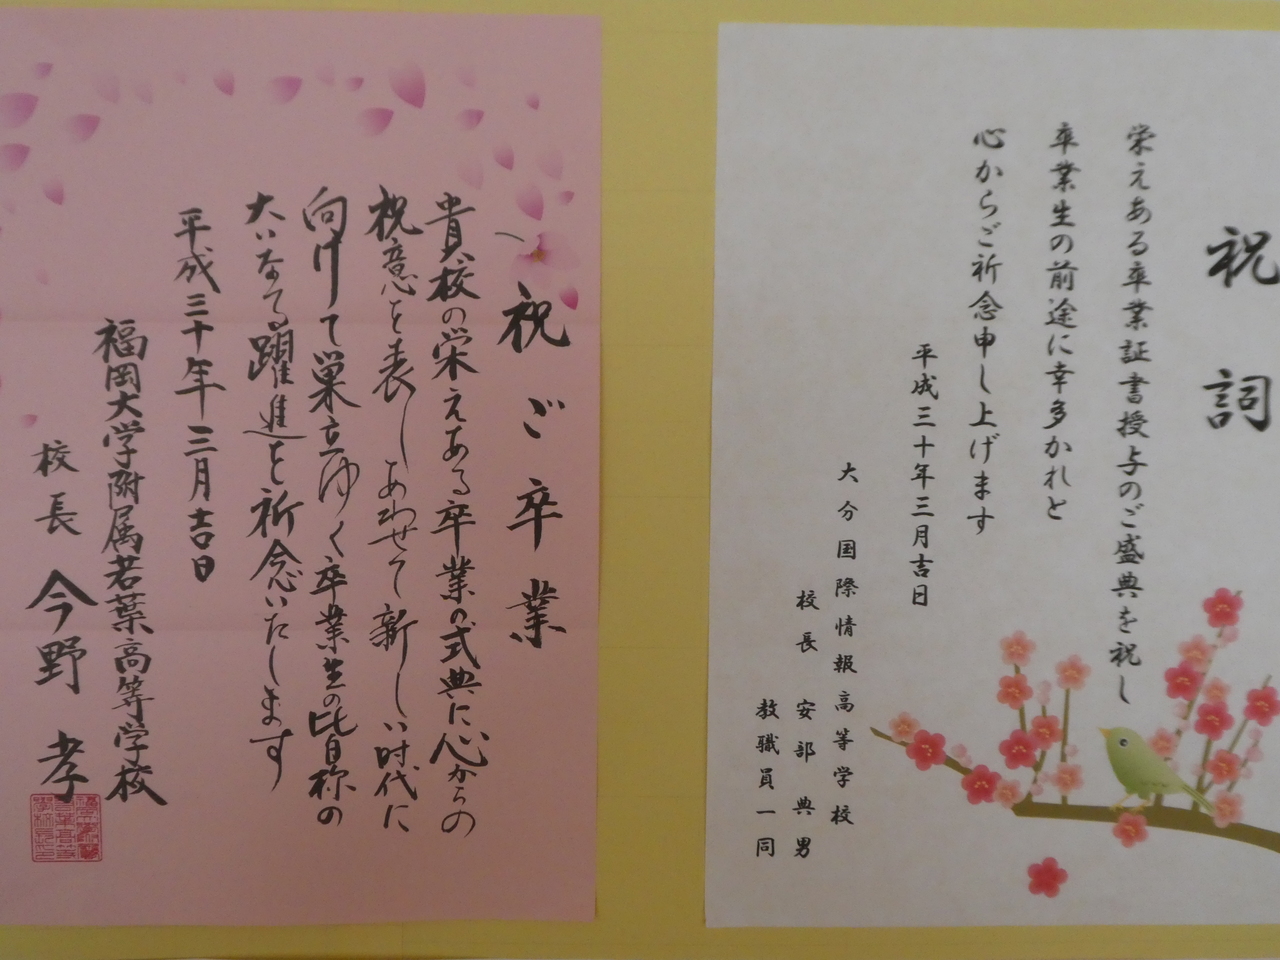 祝詞
栄えある卒業証書授与のご盛典を祝し
卒業生の前途に幸多かれと
心からご祈念申し上げます
平成三十年三月吉日
大分国際情報高等学校
校長 安部典男
教職員一同
祝ご卒業
貴校の栄えある卒業の式典に心からの
祝意を表しあわせて新しい時代に
向けて巣立ゆく卒業生の皆様の
大いなる躍進を祈念いたします
平成三十年三月吉日
福岡大学附属若葉高等学校
校長 今野孝